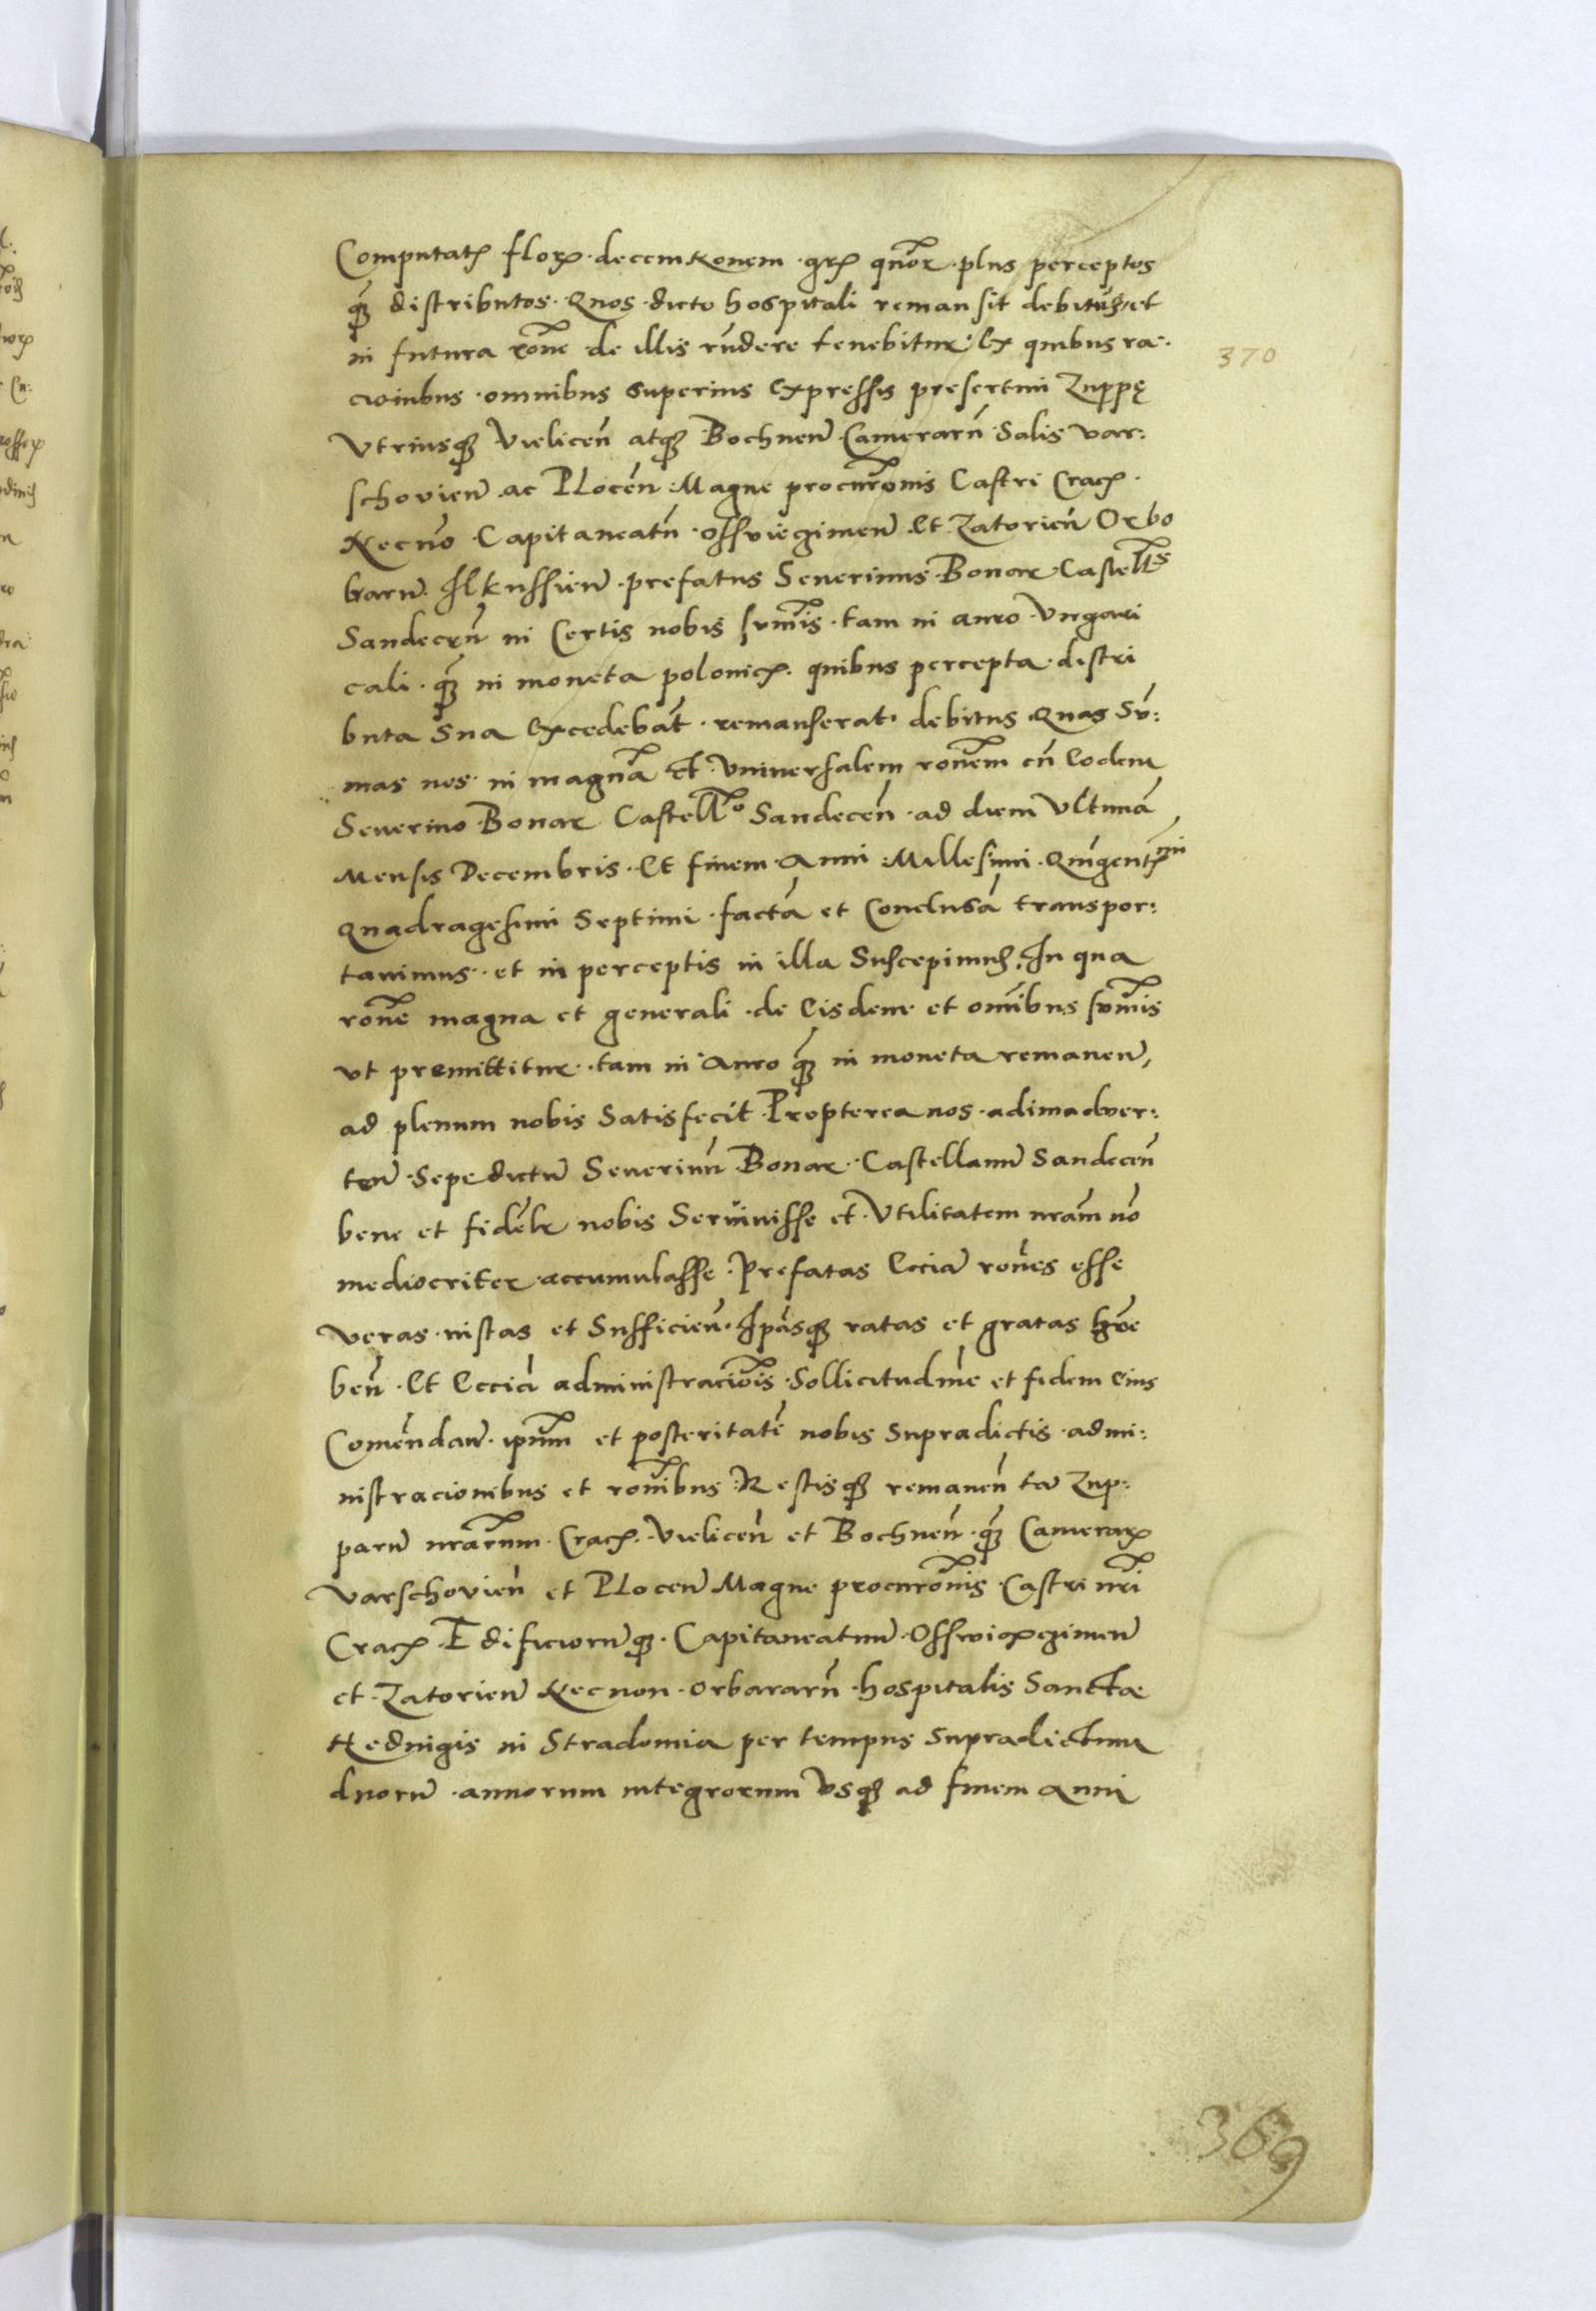 Computatꝭ floꝝ · decemnonem · grꝭ quōr · plus perceptos
qꝫ distributos · Quos · dicto hospitali remansit debitus et
in futura rōne de illis rn̄dere tenebitur · Ex quibus ra-
cioinbus · omnibus superius expressis presertim Zuppę
Vtriusqꝫ Vielicen̄ atqꝫ Bochnen̄ Camerarn̄ Salis Var:
schovien̄ ac Plocen̄ Magne procurōnis Castri Cracꝭ ·
Necnō Capitaneatn̄ · Osswiegimen̄ Et Zatorien̄ Orbo
brarn̄ Ilkussien̄ · prefatus Severinus Bonar Castellꝰs
Sandecen̄ in Certis nobis sum̄is · tam in auro Vngari
cali · qꝫ in moneta polonicꝭ · quibus percepta · distri
buta Sua Excedebāt · remanserat · debitus Quas Sū:
mas nos · in magnā et Vniversalem rōnem cū Eodem
Severino Bonar Castellº Sandecen̄ · ad diem Vltimā
Mensis Decembris · Et finem · Anni Millesimi · Quīgentꝭmi
Quadragesimi Septimi · factā et Conclusā transpor:
tavimus · et in perceptis in illa Suscepimus · In qua
rōne magna et generali · de Eisdem et om̄ibus sum̄is
vt premittitur · tam in Auro qꝫ in moneta remanen̄
ad plenum nobis Satisfecit · Propterea nos · adimadver:
ten̄ · Sepedictū Severinū Bonar · Castellanū Sandecen̄
bene et fidelr nobis Servivisse et Vtilitatem nrām nō
mediocriter accumulasse · Prefatas Eciā rōnes esse
veras · iustas et Sufficien̄ · Ipāsqꝫ ratas et gratas hrē
ben̄ · Et Eciā administraciōis · Sollicitudinē et fidem Eius
Comēndan̄ · ipsum et posteritatē nobis Supradictis · admi:
nistracionibus et rōnibus · Restisqꝫ remanen̄ tā Zup:
parū nrārum · Cracꝭ · Vielicen̄ et Bochnen̄ · qꝫ Cameraꝝ
Varschovien̄ et Plocen̄ Magne procurōnis Castri nrī
Cracꝭ · Edificiorūqꝫ · Capitaneatuū · Osswiexegimen̄
et · Zatorien̄ Necnon · Orbararū · hospitalis Sanctæ
Hedvigis in Stradomia per tempus Supradictum
duorū · annorum integrorum Vsqꝫ ad finem Anni
370
369